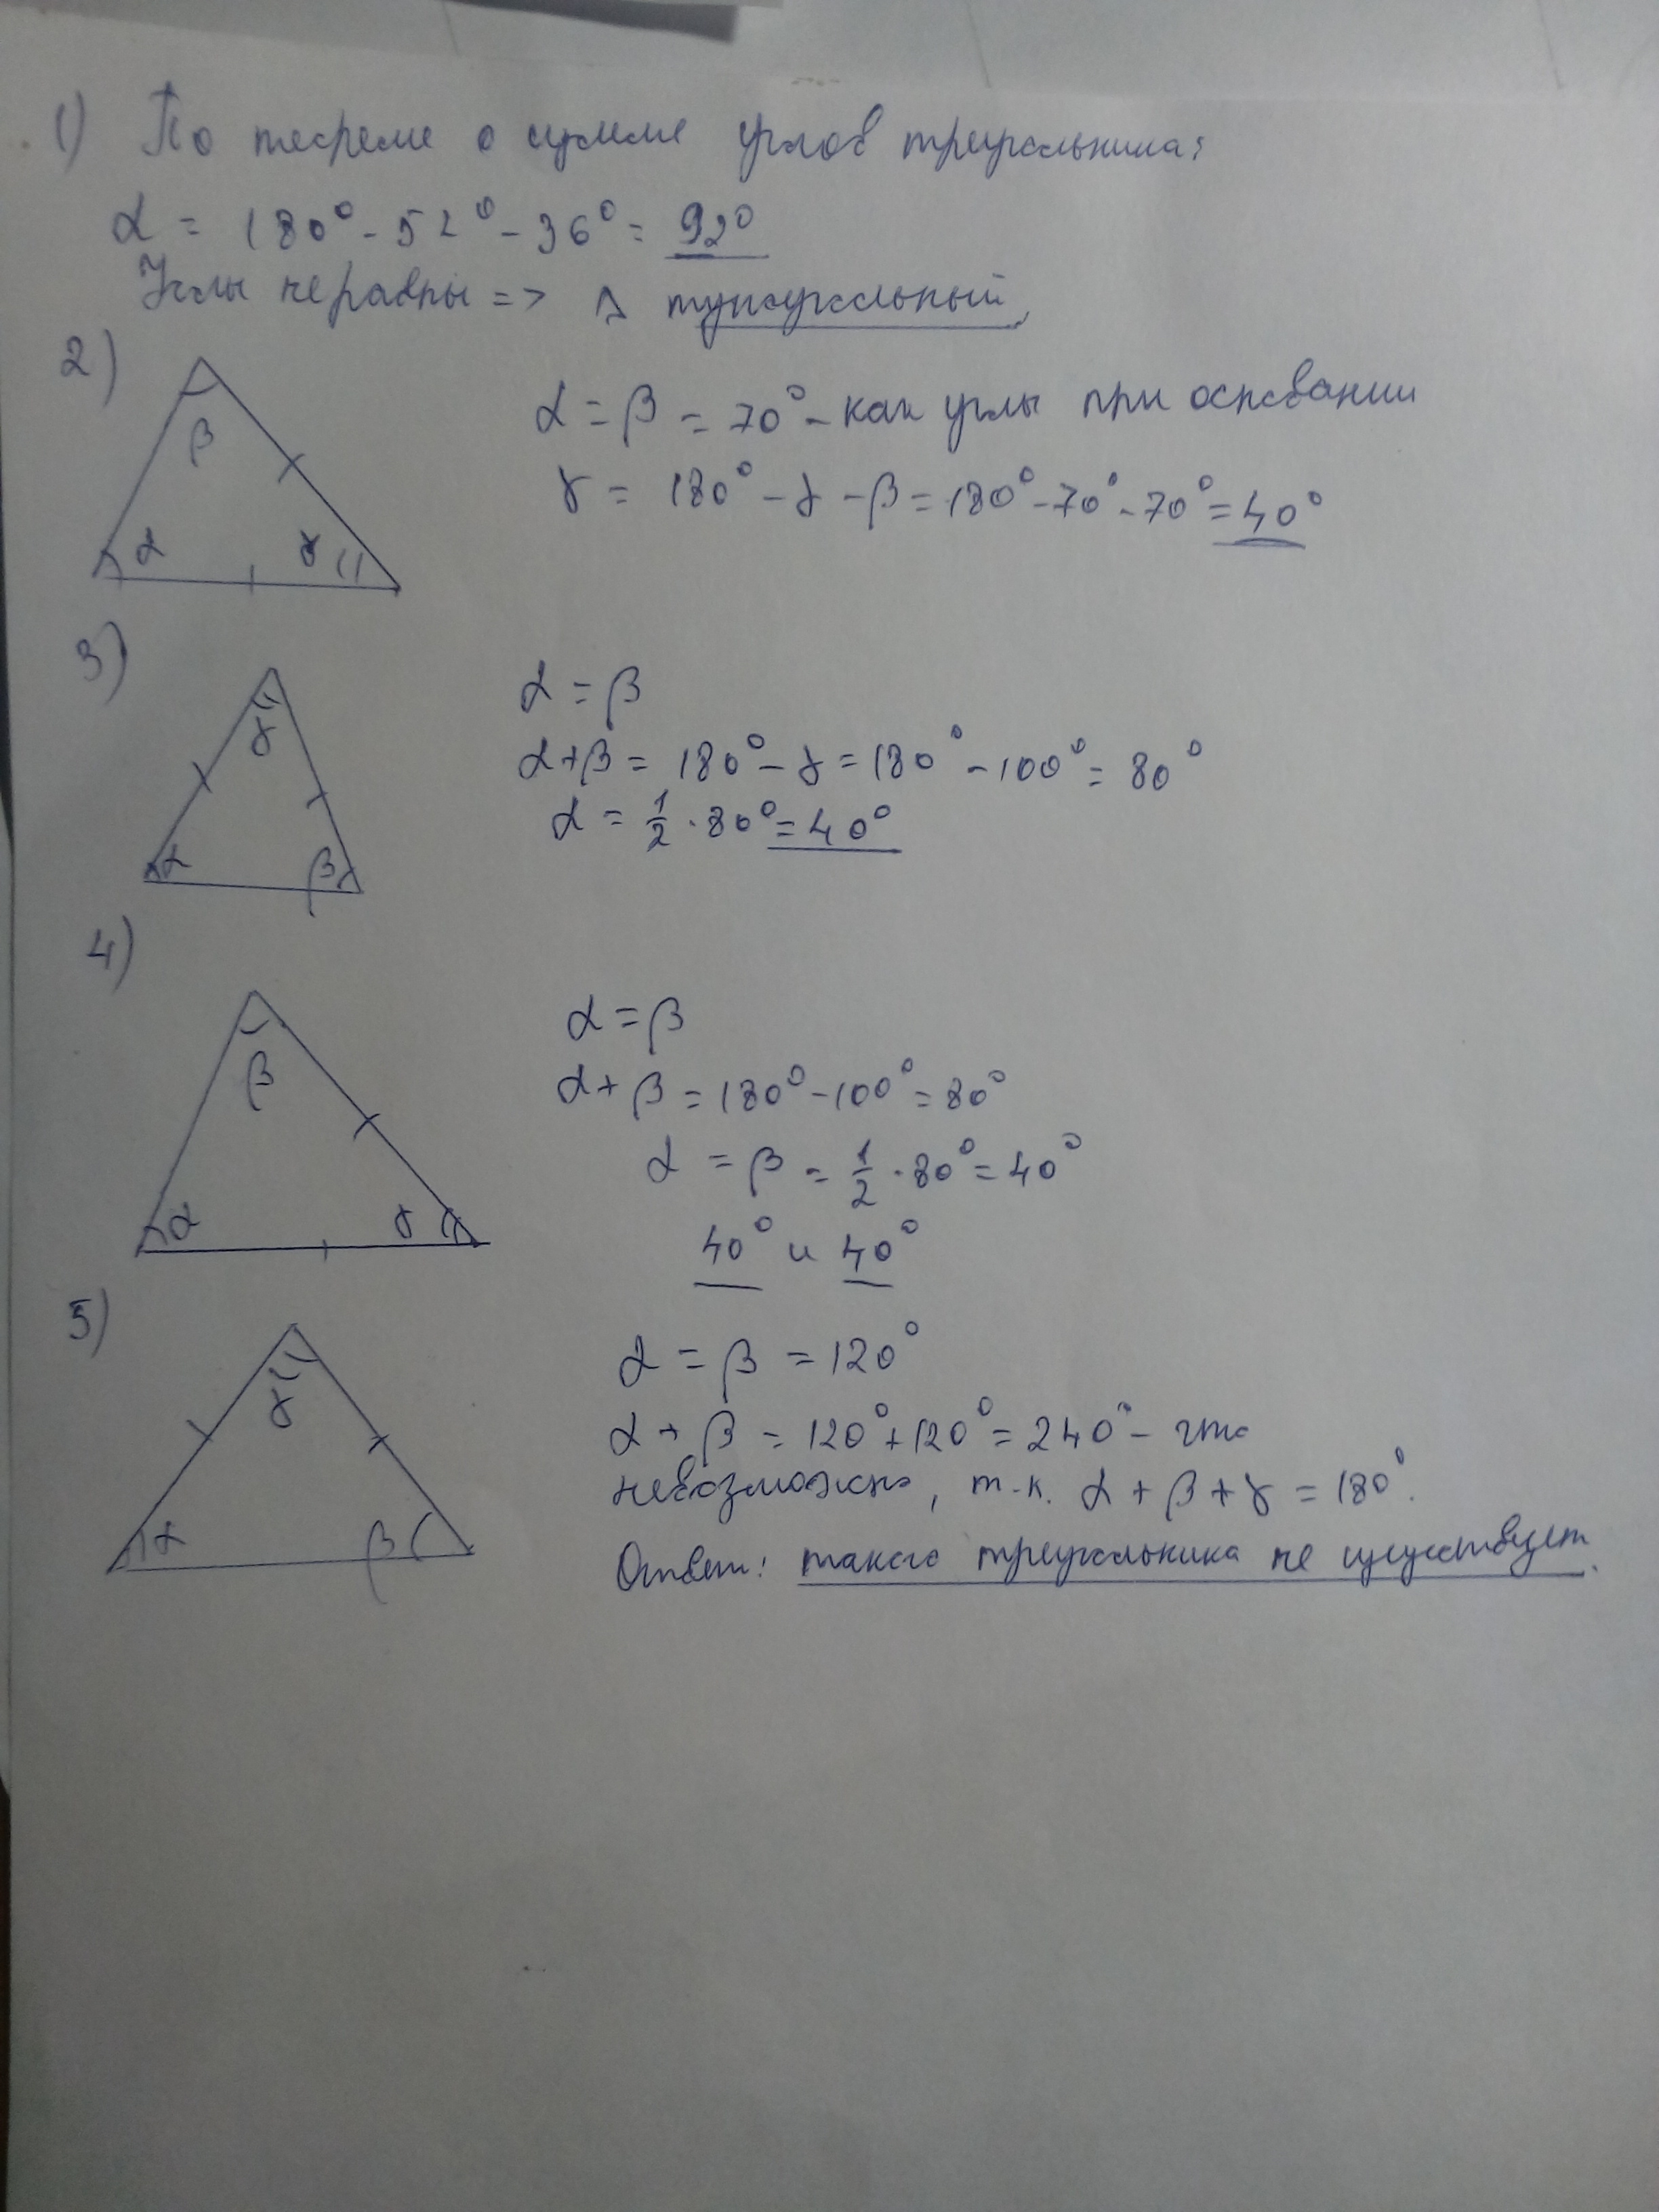 1) По теореме о сумме углов треугольника:
α = 180° - 52° - 36° = 92°
Углы не равны => Δ тупоугольный.
2)
β
α
γ
α = β = 70° - как углы при основании
γ = 180° - γ - β = 180° - 70° - 70° = 40°
3)
γ
α
β
α = β
α + β = 180° - γ = 180° - 100° = 80°
α = 1/2 · 80° = 40°
4)
β
α
γ
α = β
α + β = 180° - 100° = 80°
α = β = 1/2 · 80° = 40°
40° и 40°
5)
γ
α
β
α = β = 120°
α + β = 120° + 120° = 240° - что
невозможно, т.к. α + β + γ = 180°.
Ответ: такого треугольника не существует.